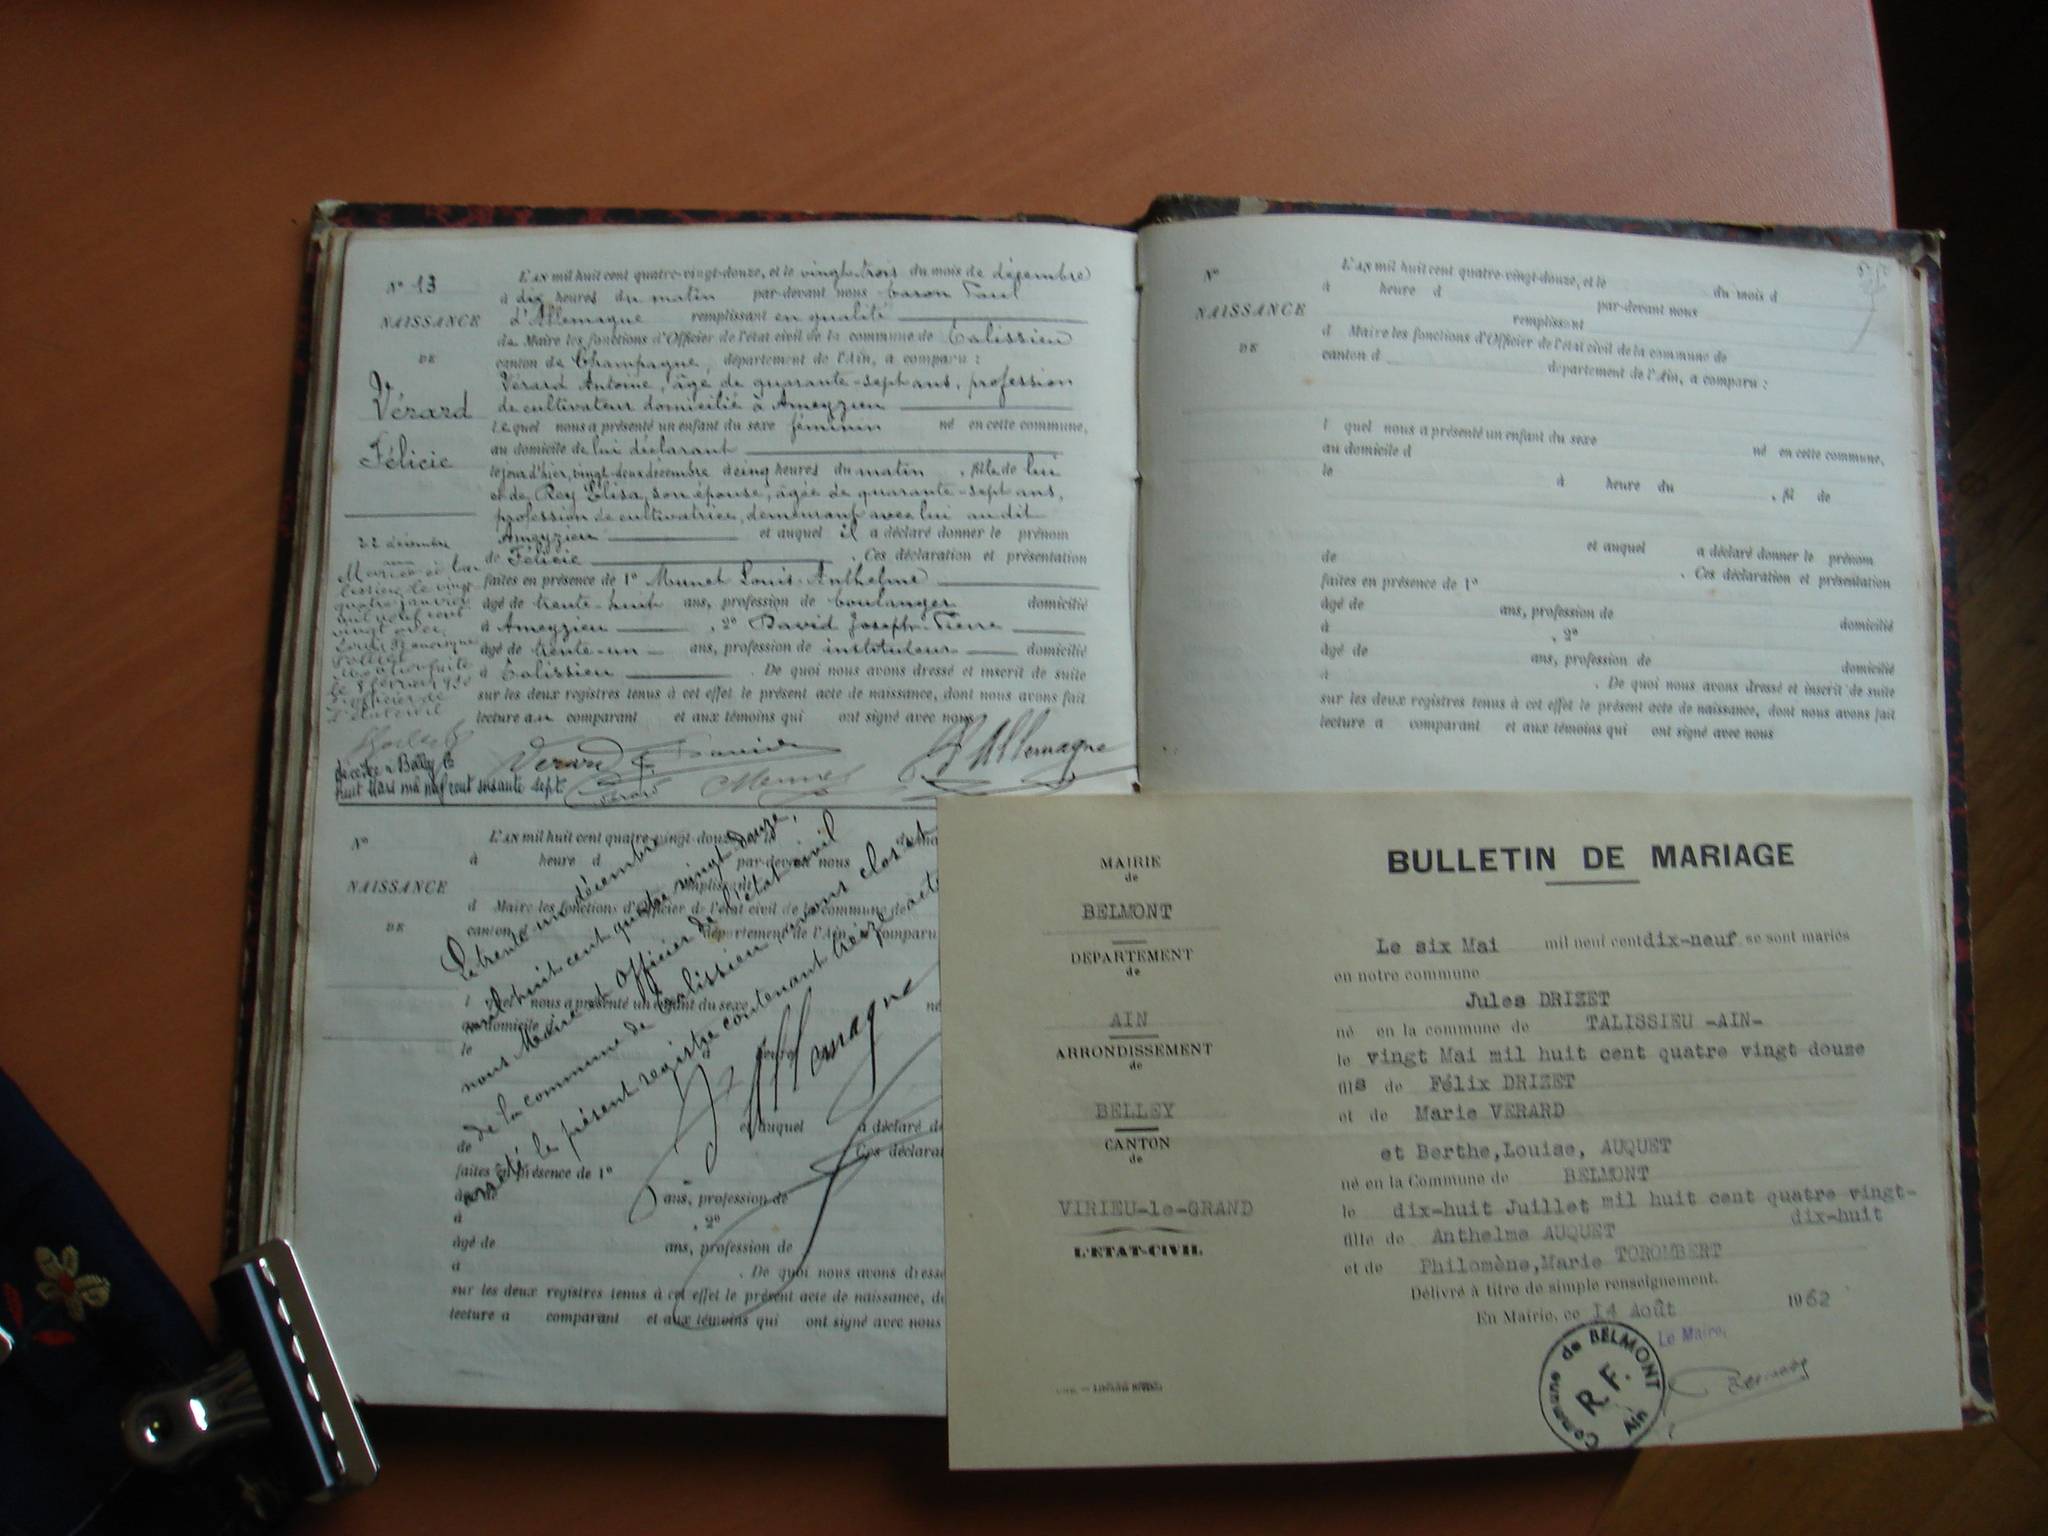 N° 13
NAISSANCE
DE
Vérard
Félicie
L'AN mil huit cent quatre-vingt-douze, et le vingt-trois du mois de décembre
à dix heures du matin par-devant nous baron Paul
d'Allemagne remplissant en qualité
de Maire les fonctions d'Officier de l'état civil de la commune de Talissieu
canton de Champagne, département de l'Ain, a comparu :
Vérard Antoine, âgé de quarante-sept ans, profession
de cultivateur domicilié à Ameyzieu
lequel nous a présenté un enfant du sexe féminin né en cette commune,
au domicile de lui déclarant
le jour d'hier, vingt-deux décembre à cinq heures du matin, fille de lui
et de Rey Elisa, son épouse, âgée de quarante-sept ans,
profession de cultivatrice, demeurant avec lui audit
Ameyzieu et auquel il a déclaré donner le prénom
de Félicie . Ces déclaration et présentation
faites en présence de 1° Munet Louis-Anthelme
âgé de trente-huit ans, profession de boulanger domicilié
à Ameyzieu , 2° David Joseph-Pierre
âgé de trente-un ans, profession de instituteur domicilié
à Talissieu . De quoi nous avons dressé et inscrit de suite
sur les deux registres tenus à cet effet le présent acte de naissance, dont nous avons fait
lecture au comparant et aux témoins qui ont signé avec nous
22 décembre
Mariée à Ta
lissieu le vingt
quatre janvier
mil neuf cent
vingt avec
Louis
Polliet
le 8 février 1920
L'officier de
l'état civil
décédée à Belley le
huit Mars mil neuf cent soixante sept
Vérard David d'Allemagne
Vérard Munet
N°
NAISSANCE
DE
L'AN mil huit cent quatre-vingt-douze, et le du mo
à heure d par-devant nous
remplissant
d Maire les fonctions d'Officier de l'état civil de la commune de
canton d département de l'Ain, a comparu
l quel nous a présenté un enfant du sexe né
au domicile d
le heure
et auquel a déclaré do
de Ces déclarat
faites en présence de 1°
âgé de ans, profession de
à , 2°
âgé de ans, profession de
à . De quoi nous avons dressé
sur les deux registres tenus à cet effet le présent acte de naissance, do
lecture a comparant et aux témoins qui ont signé avec nous
Le trente un décembre
mil huit cent quatre vingt douze,
nous Maire et Officier de l'état civil
de la commune de Talissieu avons clos et
arrêté le présent registre contenant treize acte
d'Allemagne
N°
NAISSANCE
DE
L'AN mil huit cent quatre-vingt-douze, et le du mois d
à heure d par-devant nous
remplissant
d Maire les fonctions d'Officier de l'état civil de la commune de
canton d département de l'Ain, a comparu :
l quel nous a présenté un enfant du sexe né en cette commune,
au domicile d
le à heure du , fil de
et auquel a déclaré donner le prénom
de . Ces déclaration et présentation
faites en présence de 1°
âgé de ans, profession de domicilié
à , 2°
âgé de ans, profession de domicilié
à . De quoi nous avons dressé et inscrit de suite
sur les deux registres tenus à cet effet le présent acte de naissance, dont nous avons fait
lecture a comparant et aux témoins qui ont signé avec nous
MAIRIE
de
BELMONT
DEPARTEMENT
de
AIN
ARRONDISSEMENT
de
BELLEY
CANTON
de
VIRIEU-le-GRAND
L'ETAT-CIVIL
BULLETIN DE MARIAGE
Le six Mai mil neuf cent dix-neuf se sont mariés
en notre commune
Jules DRIZET
né en la commune de TALISSIEU -AIN-
le vingt Mai mil huit cent quatre vingt douze
fils de Félix DRIZET
et de Marie VERARD
et Berthe,Louise, AUQUET
né en la Commune de BELMONT
le dix-huit Juillet mil huit cent quatre vingt-
dix-huit
fille de Anthelme AUQUET
et de Philomène,Marie TOROMBERT
Délivré à titre de simple renseignement.
En Mairie, ce 14 Août 1962
Le Maire,
Commune de BELMONT
R.F.
Ain